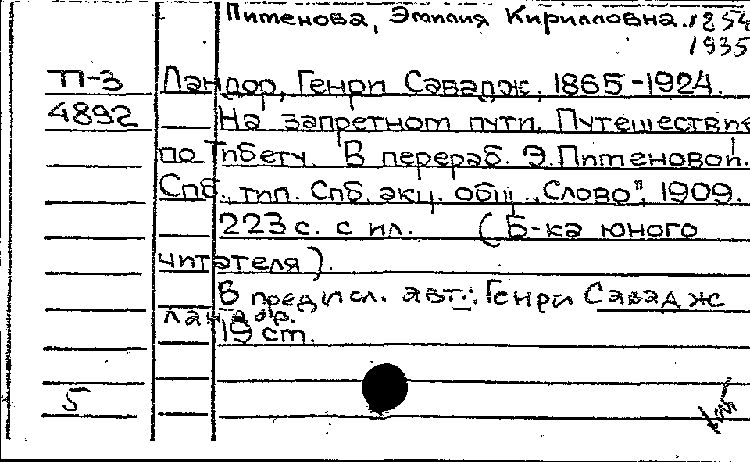 Пименова, Эмилия Кирилловна. 1854
1935
П-3 Ландор, Генри Савадж, 1865-1924.
4892 На запретном пути. Путешествие
по Тибету. В перераб. Э. Пименовой.
Спб., тип. Спб. акц. общ. „Слово", 1909.
223 с. с ил. (Б-ка юного
читателя).
В предисл. авт.: Генри Савадж
Ландор.
19 ст.
5